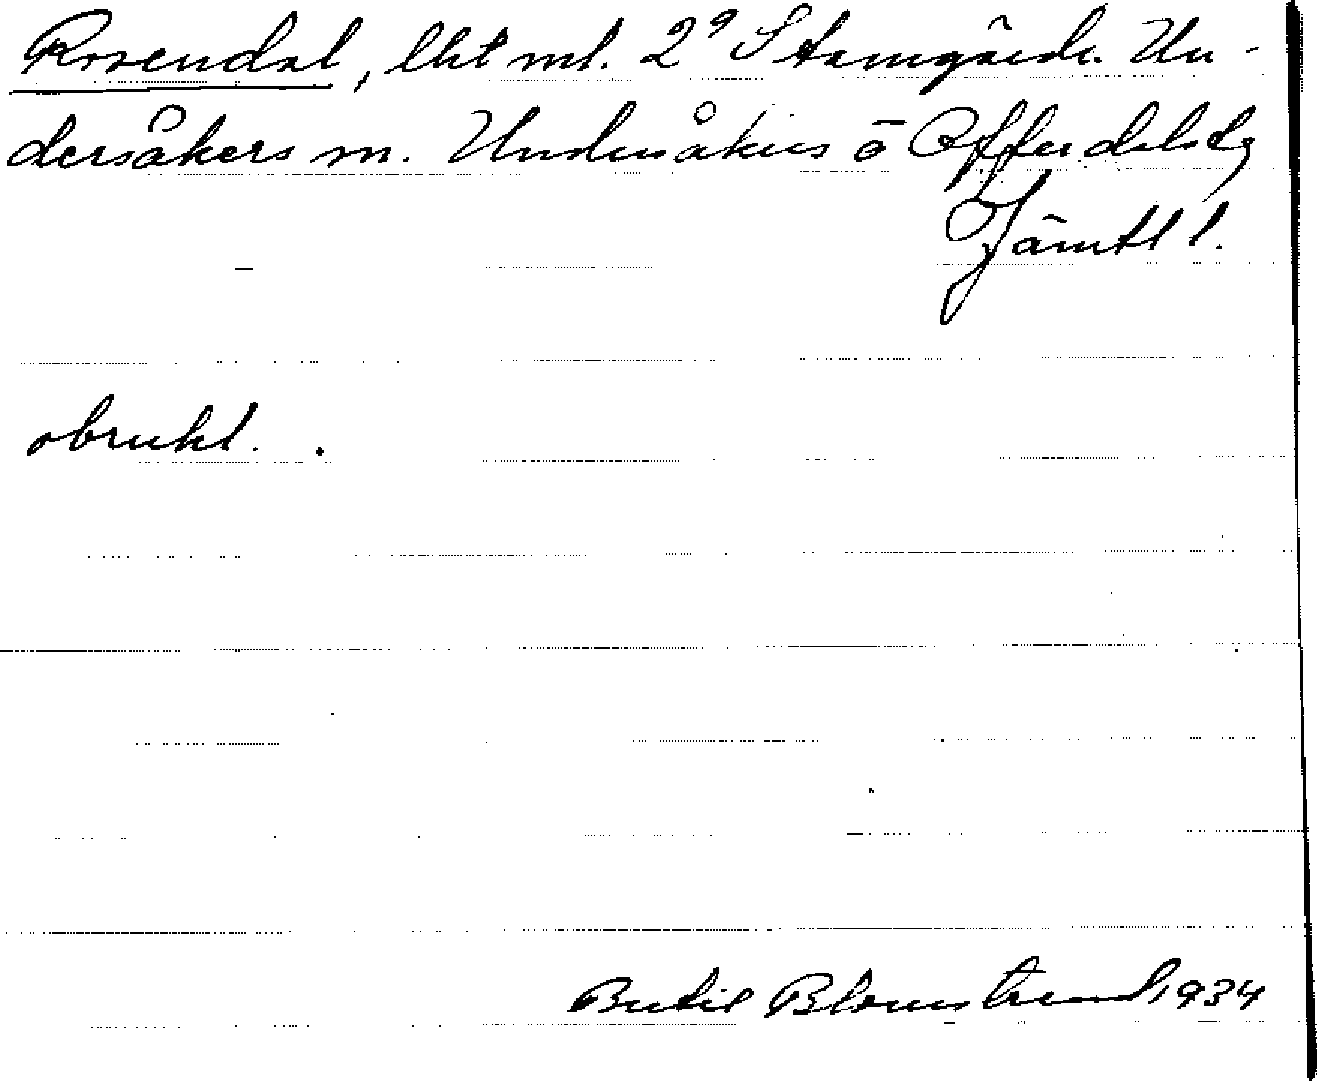 Rosendal, lht nr 2⁹ Stamgärde. Un-
dersåkers sn. Undersåkers o Offerdals tg
Jämtl l.
obrukl.
Bertil Blomstrand 1934